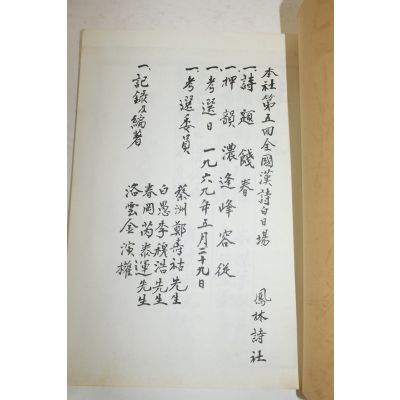 本社第五回全國漢詩白日場
鳳林詩社
一. 詩題 餞春
一. 押韻 濃逢峰容從
一. 考選日 一九六九年五月二十九日
一. 考選委員
蔡洲鄭壽祜先生
白愚李穆浩先生
春岡芮泰運先生
一. 記錄及編著
洛雲金演權